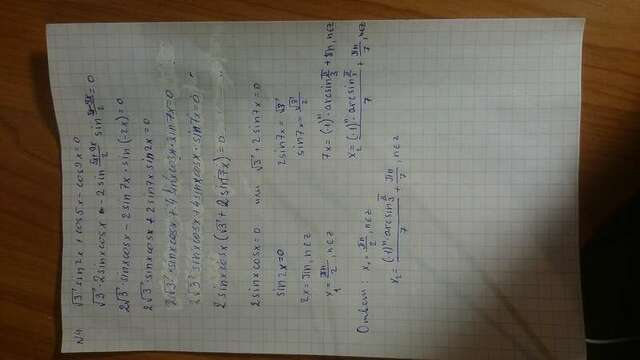 N4. √3 sin2x + cos5x - cos9x = 0
√3 · 2sinxcosx - 2 sin (5x+9x)/2 sin (5x-9x)/2 = 0
2√3 · sinxcosx - 2sin7x · sin(-2x) = 0
2√3 · sinxcosx + 2sin7x sin2x = 0
2√3 · sinxcosx + 4sinxcosx · sin7x = 0
2√3 sinxcosx + 4sinxcosx · sin7x = 0
2sinxcosx (√3 + 2sin7x) = 0
2sinxcosx = 0 или √3 + 2sin7x = 0
sin2x = 0 2sin7x = √3
sin7x = √3/2
2x = πn, n∈z
x₁ = πn/2, n∈z 7x = (-1)ⁿ · arcsin π/3 + πn, n∈z
x₂ = (-1)ⁿ · arcsin π/3 / 7 + πn/7, n∈z
Ответ: x₁ = πn/2, n∈z
x₂ = (-1)ⁿ · arcsin π/3 / 7 + πn/7, n∈z